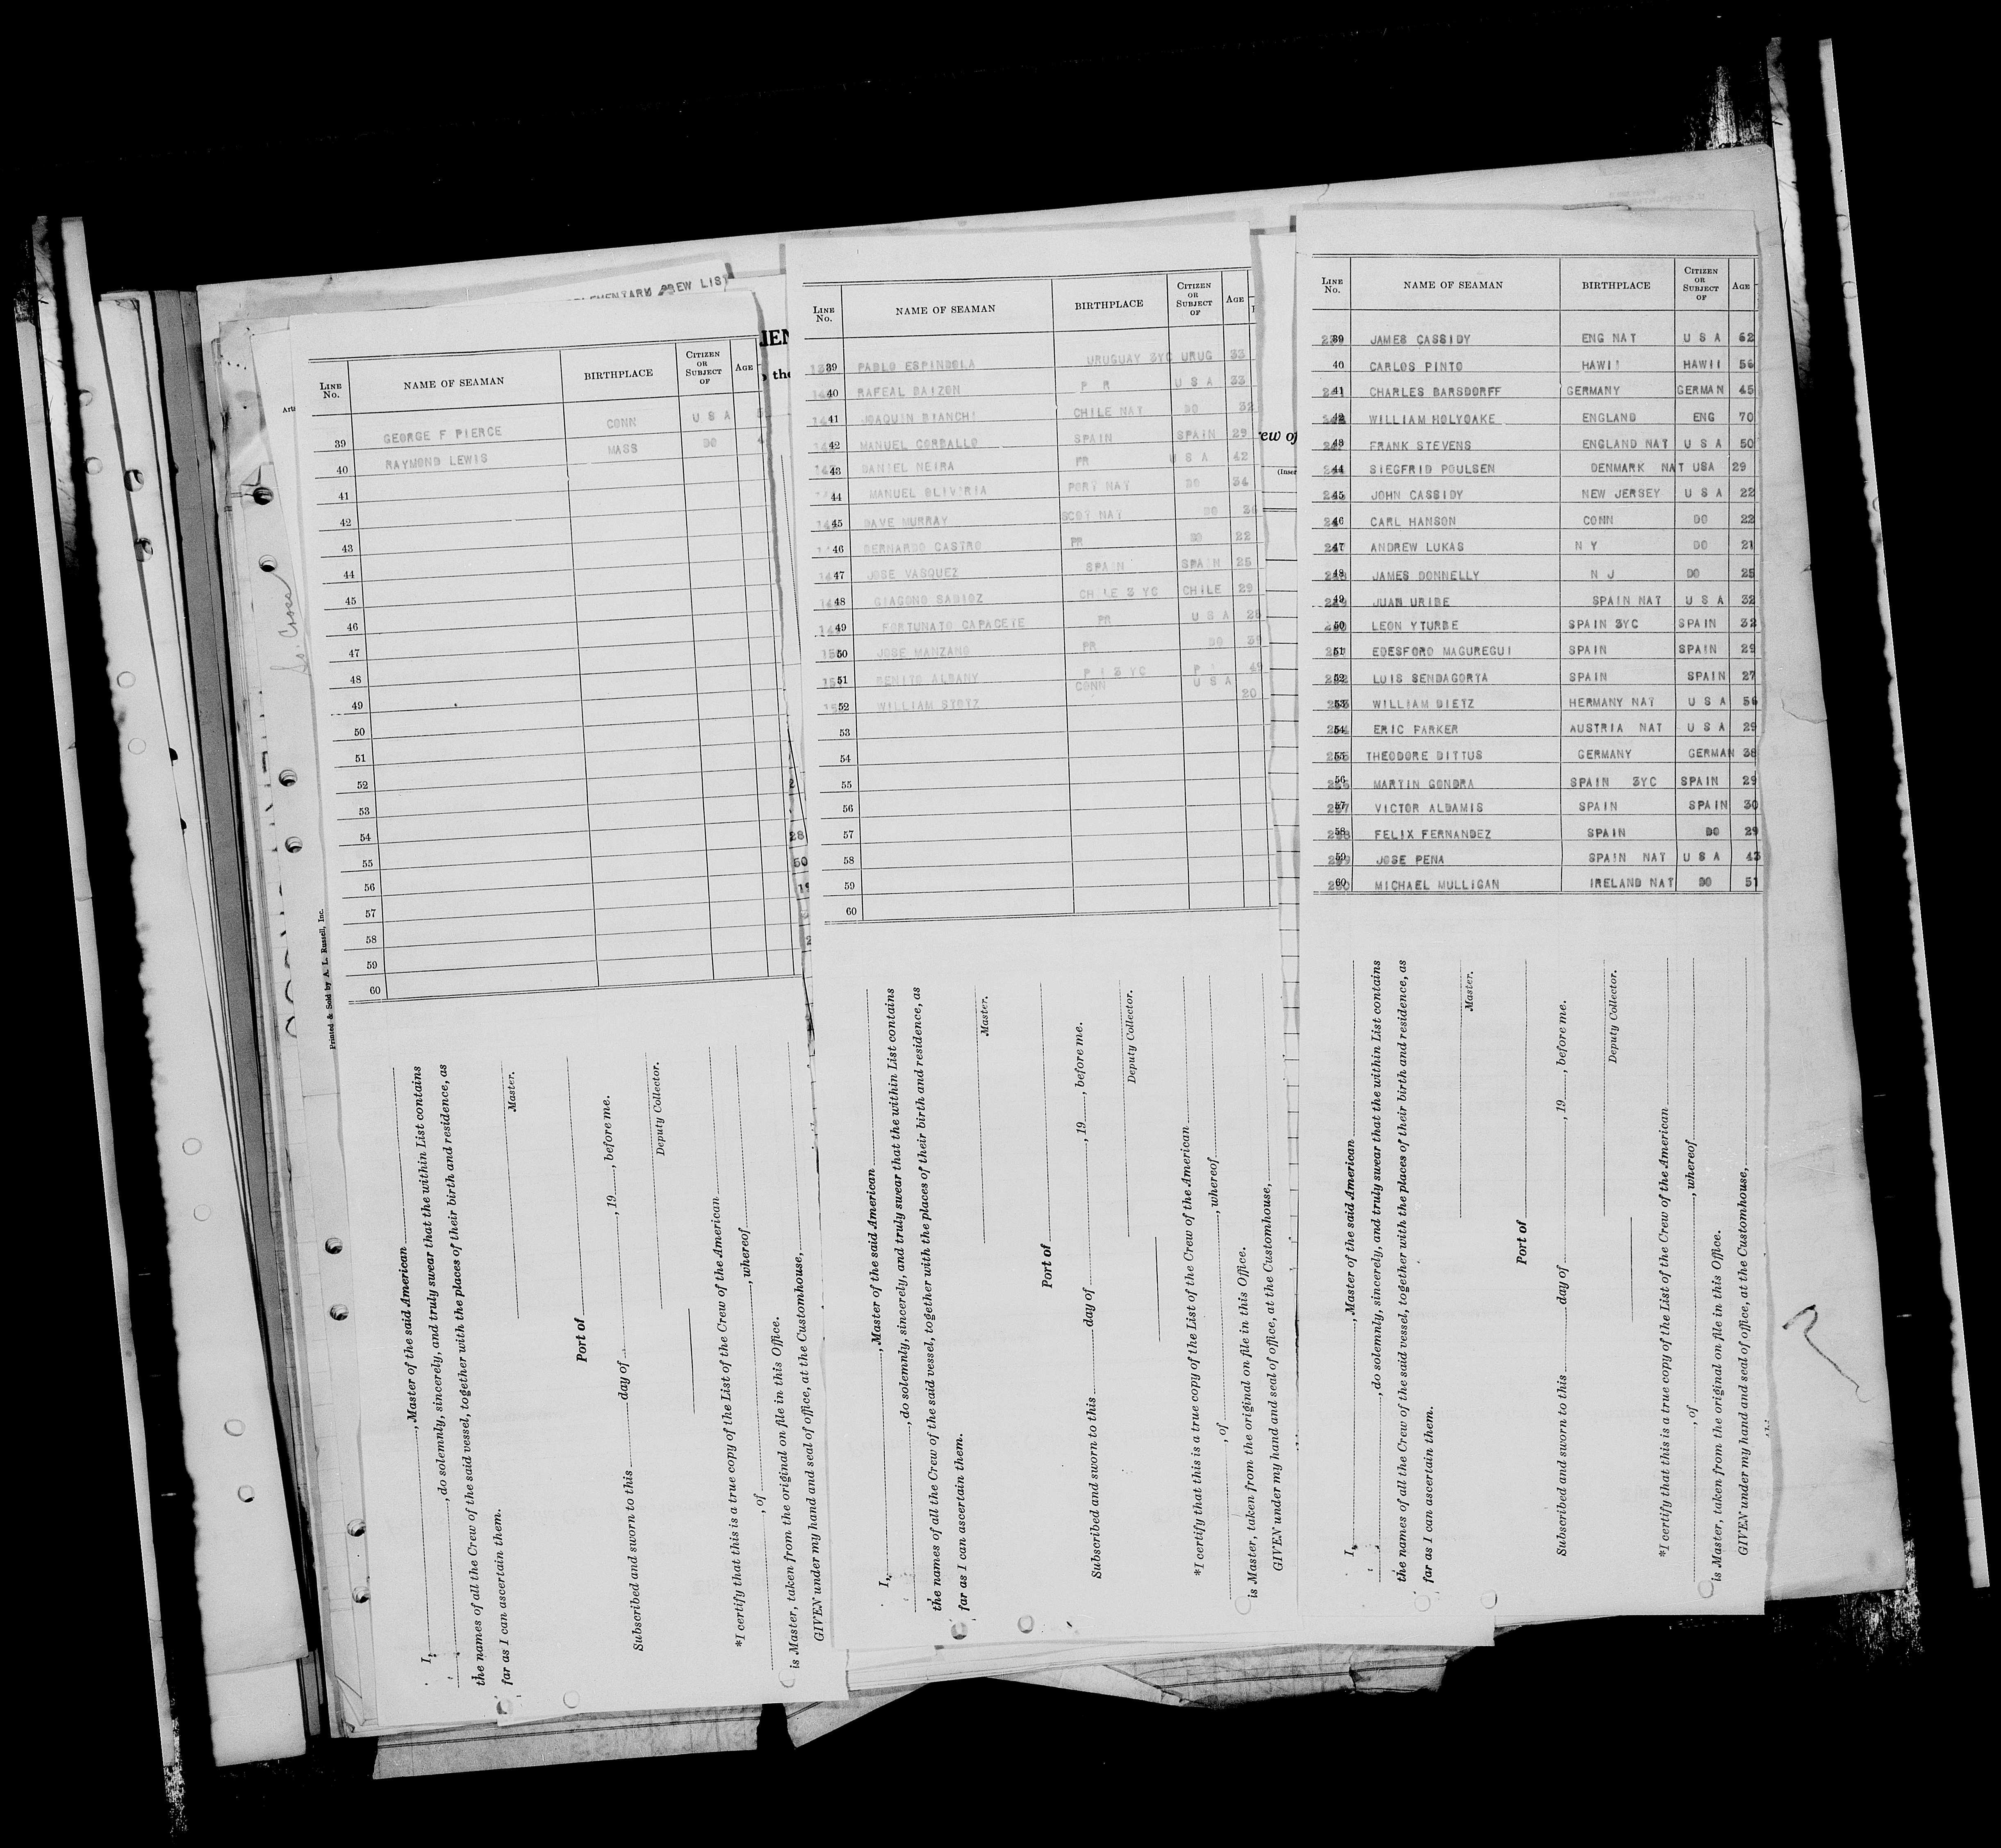 LINE No. NAME OF SEAMAN BIRTHPLACE CITIZEN OR SUBJECT OF AGE
39 GEORGE F PIERCE CONN U S A
40 RAYMOND LEWIS MASS DO
41
42
43
44
45
46
47
48
49
50
51
52
53
54
55
56
57
58
59
60
Printed & Sold by A. L. Russell, Inc.
I, , Master of the said American
, do solemnly, sincerely, and truly swear that the within List contains
the names of all the Crew of the said vessel, together with the places of their birth and residence, as
far as I can ascertain them.
Master.
Port of
Subscribed and sworn to this day of , 19 , before me.
Deputy Collector.
*I certify that this is a true copy of the List of the Crew of the American
, of , whereof
is Master, taken from the original on file in this Office.
GIVEN under my hand and seal of office, at the Customhouse,
LINE No. NAME OF SEAMAN BIRTHPLACE CITIZEN OR SUBJECT OF AGE
39 PABLO ESPINDOLA URUGUAY 3YC URUG 33
40 RAFEAL BAIZON P R U S A 33
41 JOAQUIN BIANCHI CHILE NAT DO 32
42 MANUEL CORBALLO SPAIN SPAIN 29
43 DANIEL NEIRA PR U S A 42
44 MANUEL OLIV'RIA PORT NAT DO 34
45 DAVE MURRAY SCOT NAT DO
46 BERNARDO CASTRO PR DO 22
47 JOSE VASQUEZ SPAIN SPAIN 25
48 GIAGONO SABIOZ CHILE 3 YC CHILE 29
49 FORTUNATO CAPACETE PR U S A 28
50 JOSE MANZANO PR DO
51 BENITO ALBANY P I 3 YC P 49
52 WILLIAM STOTZ CONN U S A 20
53
54
55
56
57
58
59
60
I, , Master of the said American
, do solemnly, sincerely, and truly swear that the within List contains
the names of all the Crew of the said vessel, together with the places of their birth and residence, as
far as I can ascertain them.
Master.
Port of
Subscribed and sworn to this day of , 19 , before me.
Deputy Collector.
*I certify that this is a true copy of the List of the Crew of the American
, of , whereof
is Master, taken from the original on file in this Office.
GIVEN under my hand and seal of office, at the Customhouse,
LINE No. NAME OF SEAMAN BIRTHPLACE CITIZEN OR SUBJECT OF AGE
39 JAMES CASSIDY ENG NAT U S A 62
40 CARLOS PINTO HAWII HAWII 56
41 CHARLES BARSDORFF GERMANY GERMAN 45
42 WILLIAM HOLYOAKE ENGLAND ENG 70
43 FRANK STEVENS ENGLAND NAT U S A 50
44 SIEGFRID POULSEN DENMARK NAT USA 29
45 JOHN CASSIDY NEW JERSEY U S A 22
46 CARL HANSON CONN DO 22
47 ANDREW LUKAS N Y DO 21
48 JAMES DONNELLY N J DO 25
49 JUAN URIBE SPAIN NAT U S A 32
50 LEON YTURBE SPAIN 3YC SPAIN 32
51 EDESFORO MAGUREGUI SPAIN SPAIN 29
52 LUIS SENDAGORTA SPAIN SPAIN 27
53 WILLIAM DIETZ HERMANY NAT U S A 56
54 ERIC FARKER AUSTRIA NAT U S A 29
55 THEODORE DITTUS GERMANY GERMAN 38
56 MARTIN GONDRA SPAIN 3YC SPAIN 29
57 VICTOR ALDAMIS SPAIN SPAIN 30
58 FELIX FERNANDEZ SPAIN DO 29
59 JOSE PENA SPAIN NAT U S A 43
60 MICHAEL MULLIGAN IRELAND NAT DO 51
I, , Master of the said American
, do solemnly, sincerely, and truly swear that the within List contains
the names of all the Crew of the said vessel, together with the places of their birth and residence, as
far as I can ascertain them.
Master.
Port of
Subscribed and sworn to this day of , 19 , before me.
Deputy Collector.
*I certify that this is a true copy of the List of the Crew of the American
, of , whereof
is Master, taken from the original on file in this Office.
GIVEN under my hand and seal of office, at the Customhouse,